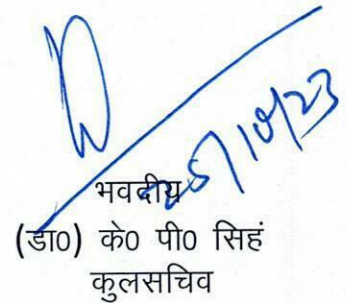 25/10/23
भवदीय
(डा0) के0 पी0 सिहं
कुलसचिव